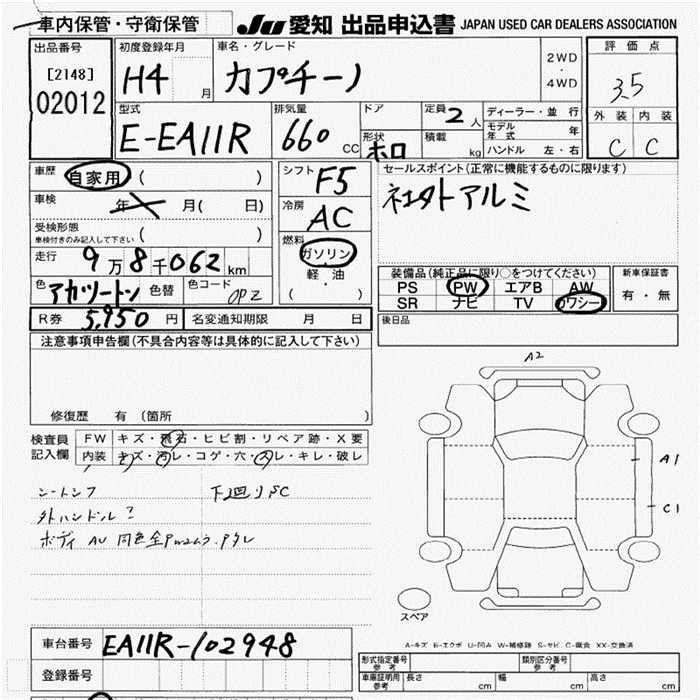 車内保管・守衛保管
JU 愛知 出品申込書 JAPAN USED CAR DEALERS ASSOCIATION
出品番号
[2148]
02012
初度登録年月
H4 月
車名・グレード
カプチーノ
2WD
・
4WD
評価点
3.5
外装 内装
C C
型式
E-EA11R
排気量
660 CC
ドア
形状
ホロ
定員 2 人
積載 kg
ディーラー・並 行
モデル年式 年
ハンドル 左・右
車歴 自家用 ( )
車検 年 月( 日)
受検形態
車検付きのみ記入して下さい ( )
走行 9万8千062km
色 アカツートン 色替
色コード OPZ
R券 5,950 円 名変通知期限 月 日
シフト F5
冷房 AC
燃料
ガソリン
軽・油
( )
セールスポイント(正常に機能するものに限ります)
社外アルミ
装備品(純正品に限り○をつけてください)
PS PW エアB AW
SR ナビ TV カワシー
新車保証書
有・無
後日品
注意事項申告欄(不具合内容等は具体的に記入して下さい)
修復歴 有 (箇所 )
検査員記入欄
FW キズ・飛石・ヒビ割・リペア跡・X要
内装 キズ・汚レ・コゲ・穴・スレ・キレ・破レ
シートシフ
下廻りSC
外ハンドル?
ボディ AU 同色全
A2
A1
C1
スペア
A-キズ E-エクボ U-凹み W-補修跡 S-サビ C-腐食 XX-交換済
車台番号 EA11R-102948
登録番号
形式指定番号 参考
類別区分番号 参考
車庫証明用 参考
長さ cm
幅 cm
高さ cm